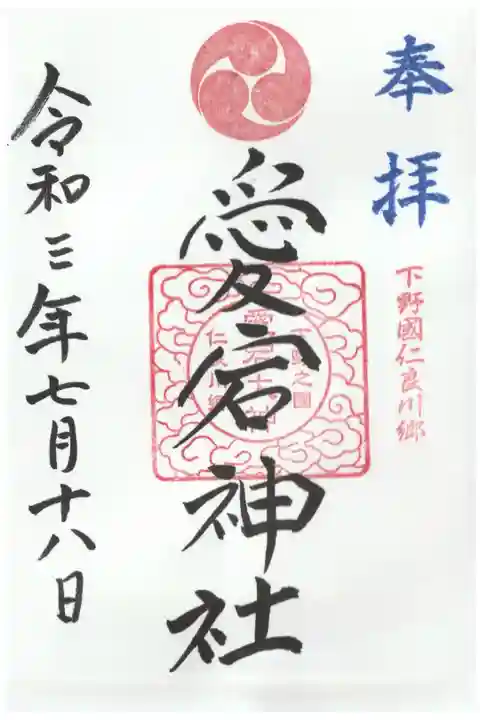 奉拝
下野國仁良川郷
愛宕神社
令和三年七月十八日